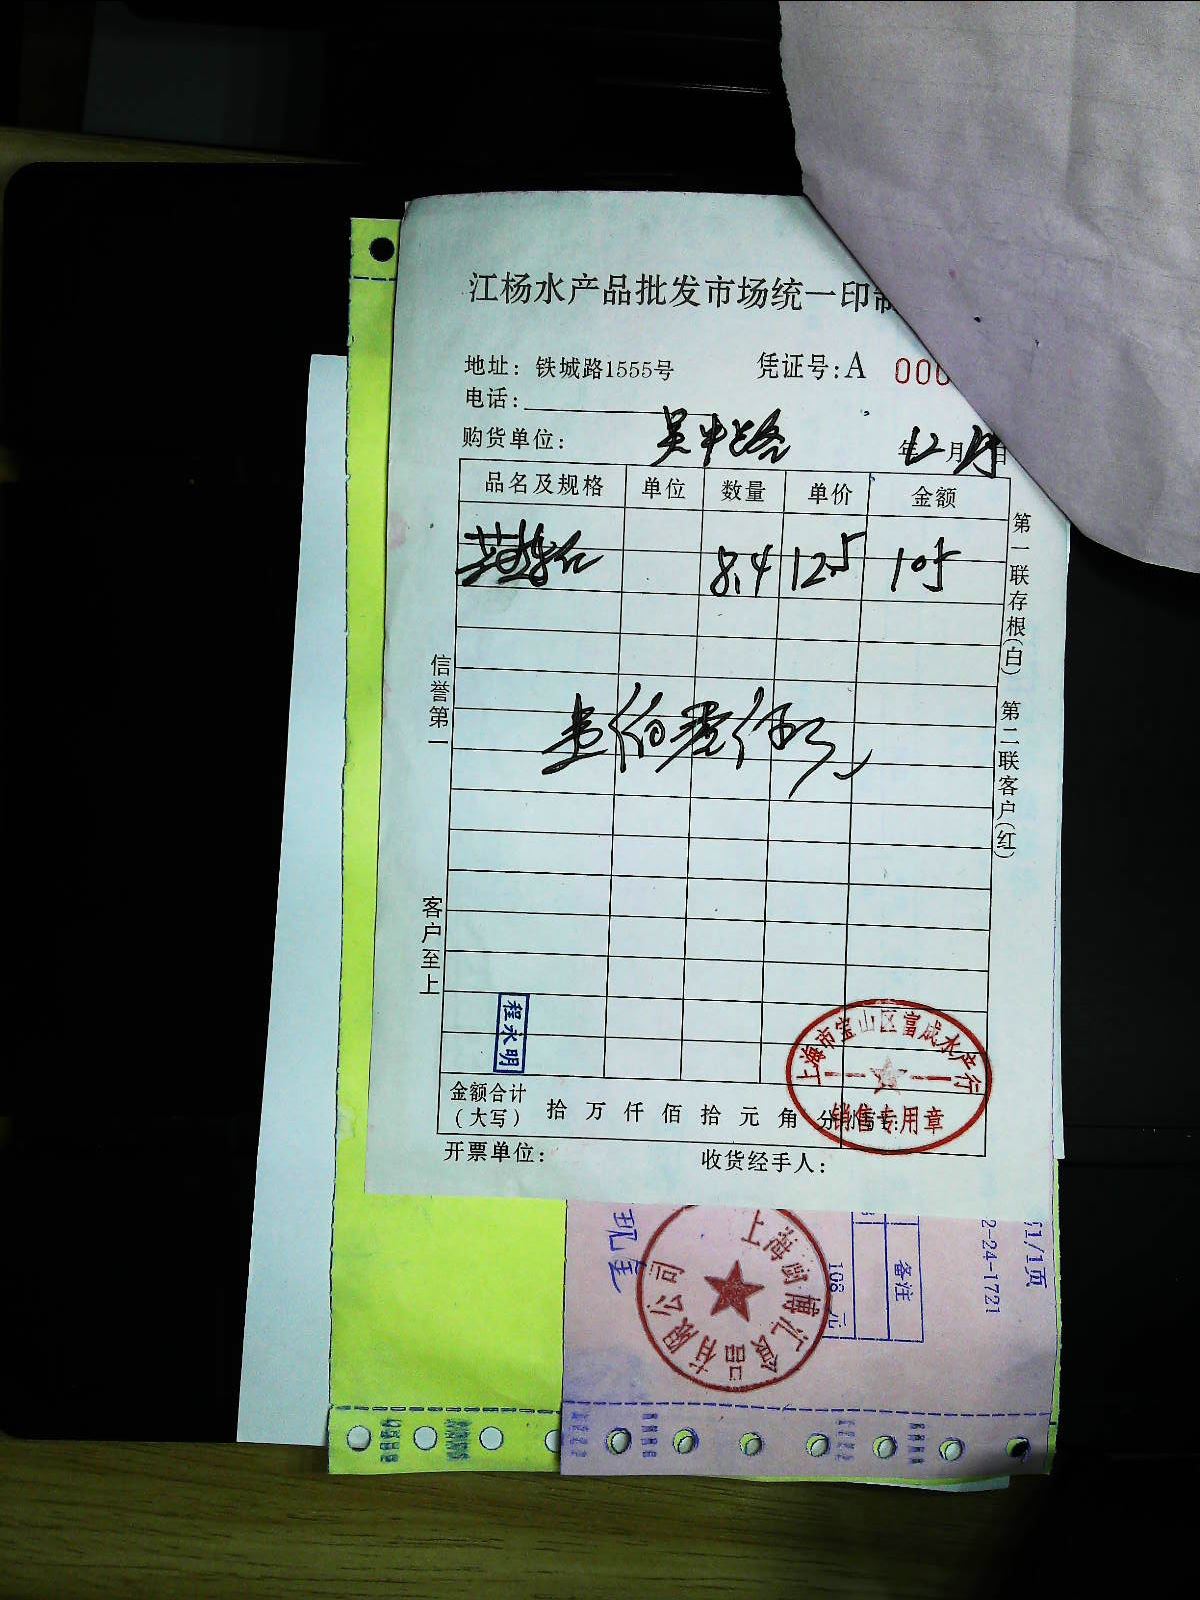 江杨水产品批发市场统一印制
地址：铁城路1555号 凭证号：A 000
电话：
购货单位： 吴中路 年12月 日
品名及规格 单位 数量 单价 金额
8.4 12.5 105
壹佰零伍元
信誉第一
客户至上
第一联存根（白） 第二联客户（红）
程永明
上海市宝山区富成水产行
销售专用章
金额合计（大写） 拾 万 仟 佰 拾 元 角 分
开票单位： 收货经手人：
现金
上海 博汇食品有限公司
108 元
备注
2-24-1721
1/1页